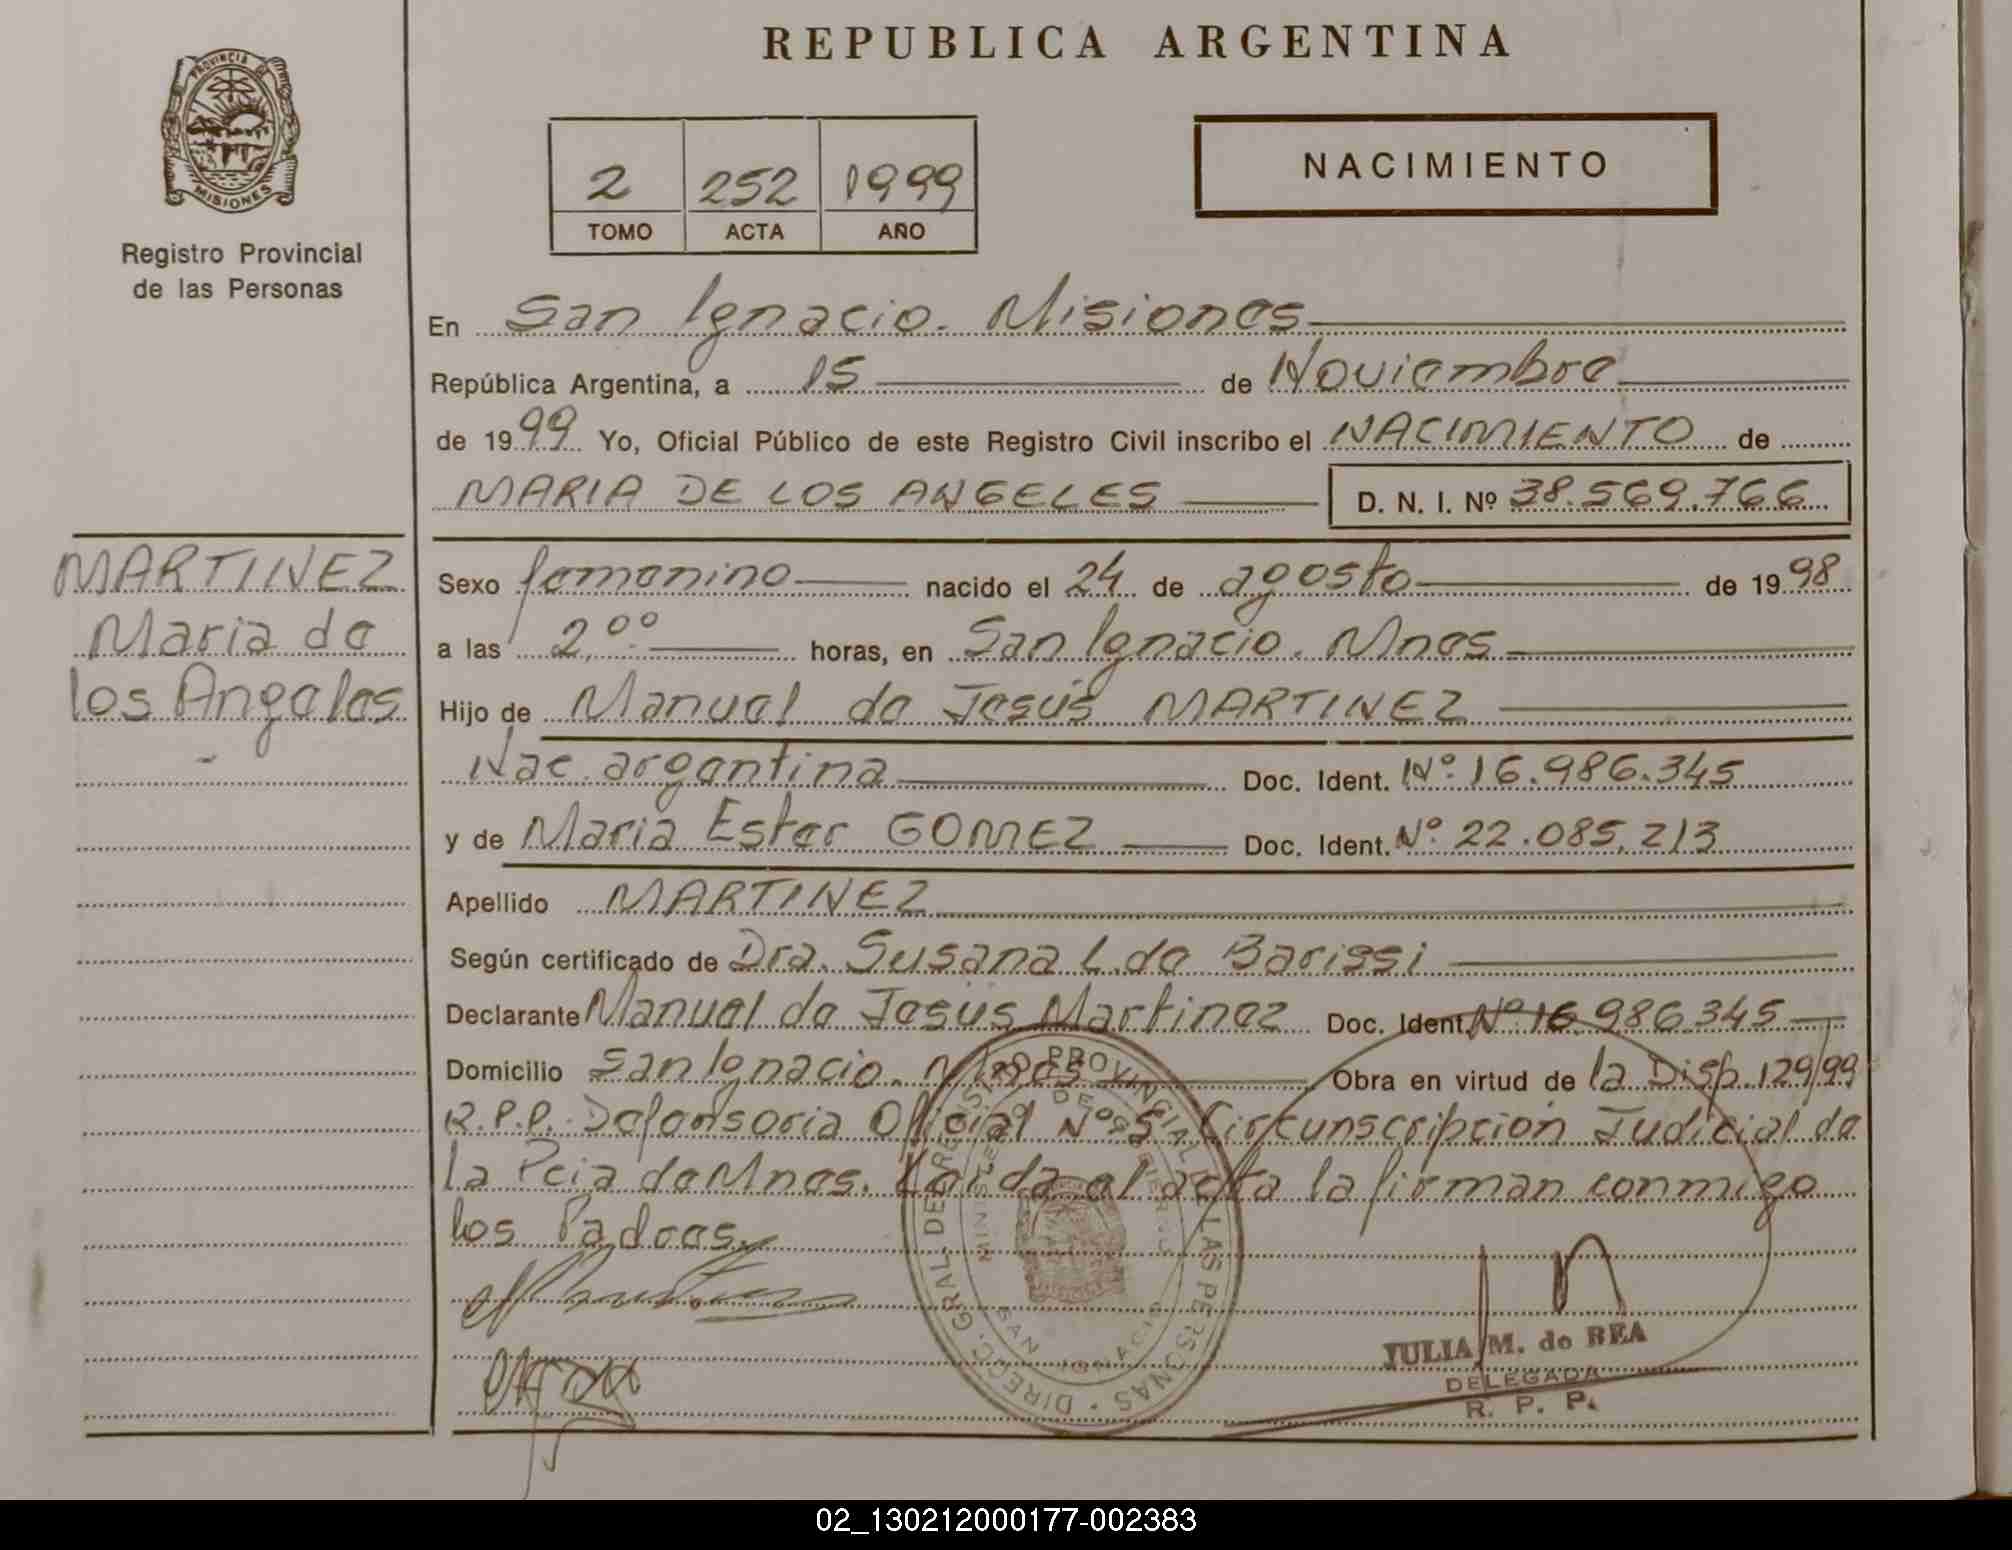 REPUBLICA ARGENTINA
PROVINCIA DE
MISIONES
Registro Provincial
de las Personas
2 252 1999
TOMO ACTA AÑO
NACIMIENTO
En San Ignacio. Misiones
República Argentina, a 15 de Noviembre
de 1999 Yo, Oficial Público de este Registro Civil inscribo el NACIMIENTO de
MARIA DE LOS ANGELES D. N. I. Nº 38.569.766
MARTINEZ
Maria de
los Angeles
Sexo femenino nacido el 24 de agosto de 1998
a las 2,ºº horas, en San Ignacio. Mnes
Hijo de Manuel de Jesús MARTINEZ
Nac. argentina Doc. Ident. Nº 16.986.345
y de Maria Ester GOMEZ Doc. Ident. Nº 22.085.213
Apellido MARTINEZ
Según certificado de Dra. Susana L. de Barissi
Declarante Manuel de Jesús Martinez Doc. Ident. Nº 16.986.345
Domicilio San Ignacio. Mnes Obra en virtud de la Disp. 129/99
R.P.P. Defensoria Oficial Nº 5 Circunscripción Judicial de
la Pcia de Mnes. Leída el acta la firman conmigo
los Padres
DIREC. GRAL. DE REGISTRO PROVINCIAL DE LAS PERSONAS
MINISTERIO DE GOBIERNO
SAN IGNACIO
JULIA M. de BEA
DELEGADA
R. P. P.
02_130212000177-002383